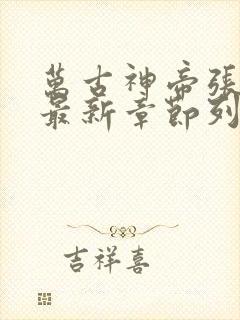 萬古神帝張
最新章節列
吉祥喜